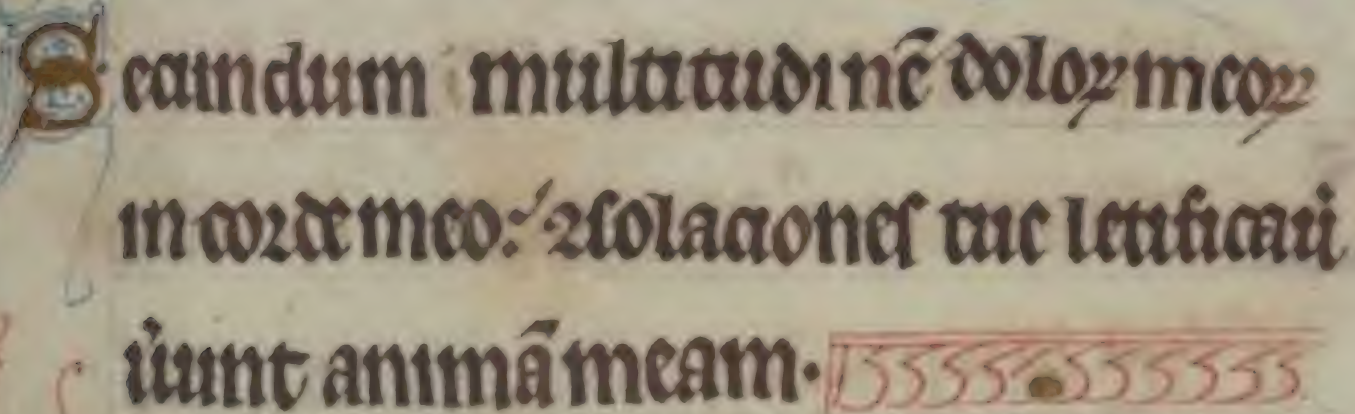 Secundum multitudinē doloꝝ meoꝝ
in corde meo: ꝯsolationes tue letificaú
úunt animā meam.